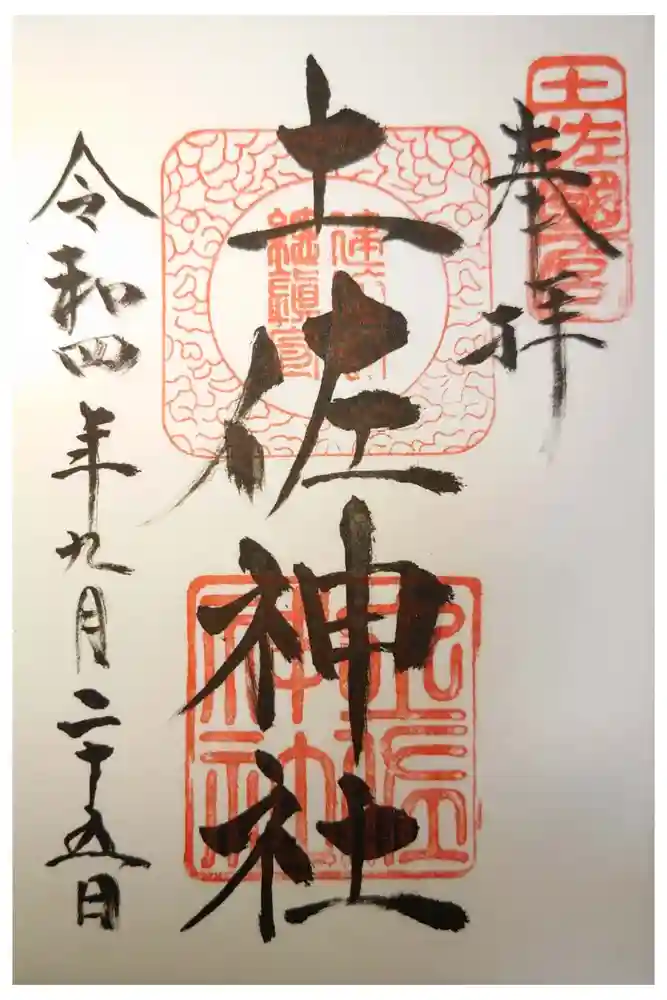 奉拝
土佐國一宮
土佐神社
土佐神社
令和四年九月二十五日